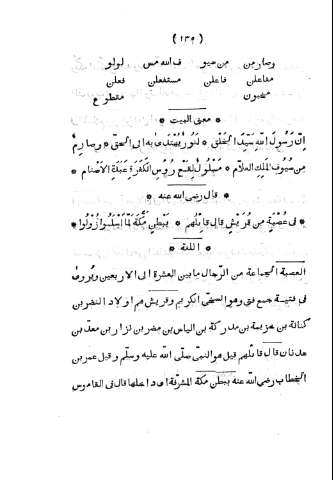 (١٣٥)
وصارمن من سيو ف الله مس لولو
مفاعلن فاعلن مستفعلن فعلن
مخبون مقطوع
* معنى البيت *
انّ رَسُولَ اللّٰهِ سَيِّدَ الخَلْقِ * لَنُورٌ يُهْتَدَى بِهِ الى الحقّ * وصارِمٌ
مِن سُيُوفِ الْمَلِكِ العلّامِ * مَسْلُولٌ لِقَمْعِ رُؤسِ الكَفَرَةِ عَبَدَةِ الأَصْنامِ *
* قال رضى الله عنه *
* فى عُصْبَةٍ مِن قُرَيْشٍ قالَ قائِلُهُم * بِبَطْنِ مَكَّةَ لَمّا أَسْلَمُوا زُولُوا *
* اللغة *
العصبة الجماعة من الرّجال ما بين العشرة الى الاربعين ويُروى
فى فتية جمع فتى وهو السخىّ الكريم وقريش هم اولاد النضر بن
كنانة بن خزيمة بن مدركة بن الياس بن مضر بن نزار بن معدّ بن
عدنان قال قائلهم قيل هو النبىّ صلّى الله عليه وسلّم وقيل عمر بن
الخطاب رضى الله عنه ببطن مكة المشرّفة اى داخلها قال فى القاموس